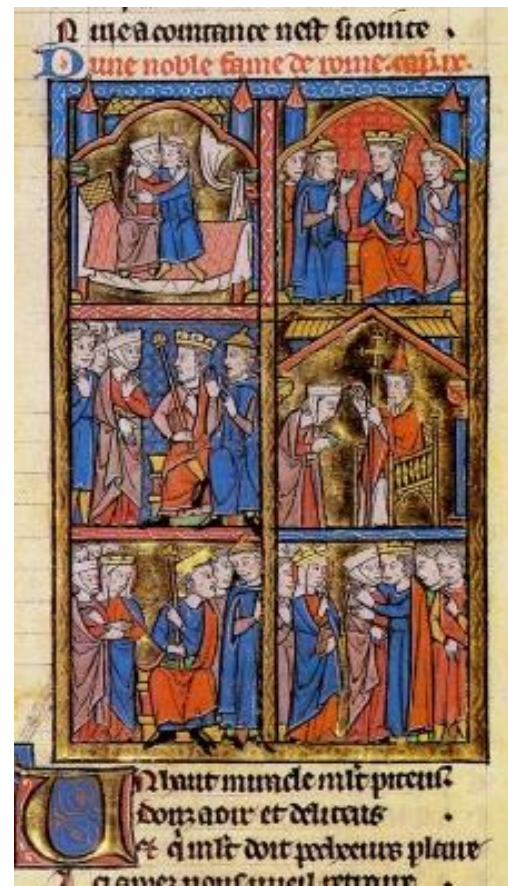 N ule acointance nest si cointe .
D une noble fame de rome. cap. ix.
U n haut miracle mlt piteus
Douz a oir et deliteus .
Et q mlt doit pecheeurs plaire
vueil retraire